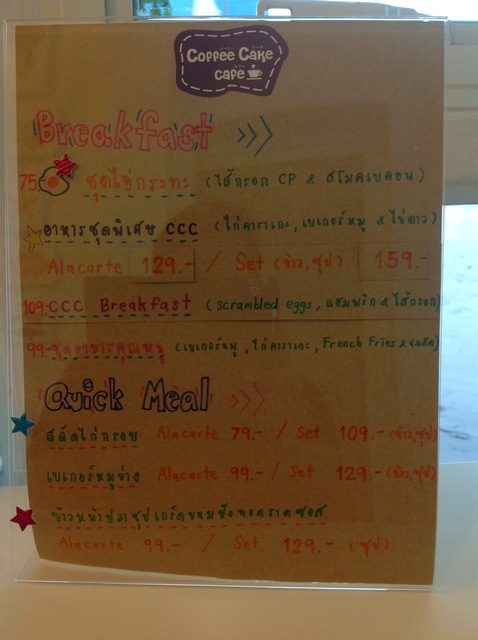 Coffee Cake
Cafe
Breakfast >>>
75.- ชุดไข่กระทะ (ไส้กรอก CP & สโมคเบคอน)
อาหารชุดพิเศษ CCC (ไก่คาราเกะ, เบเกอร์หมู & ไข่ดาว)
Alacarte 129.- / Set (ข้าว, ซุป) 159.-
109.- CCC Breakfast (scrambled eggs, แฮมพริก & ไส้กรอก)
99.- ชุดอาหารคุณหนู (เบเกอร์หมู, ไก่คาราเกะ, French Fries &
Quick Meal >>>
สลัดไก่กรอบ Alacarte 79.- / Set 109.- (ข้าว, ซุป)
เบเกอร์หมูย่าง Alacarte 99.- / Set 129.- (ข้าว, ซุป)
ข้าวหน้าปลาชุปเกร็ดขนมปังทอดราดซอส
Alacarte 99.- / Set 129.- (ซุป)